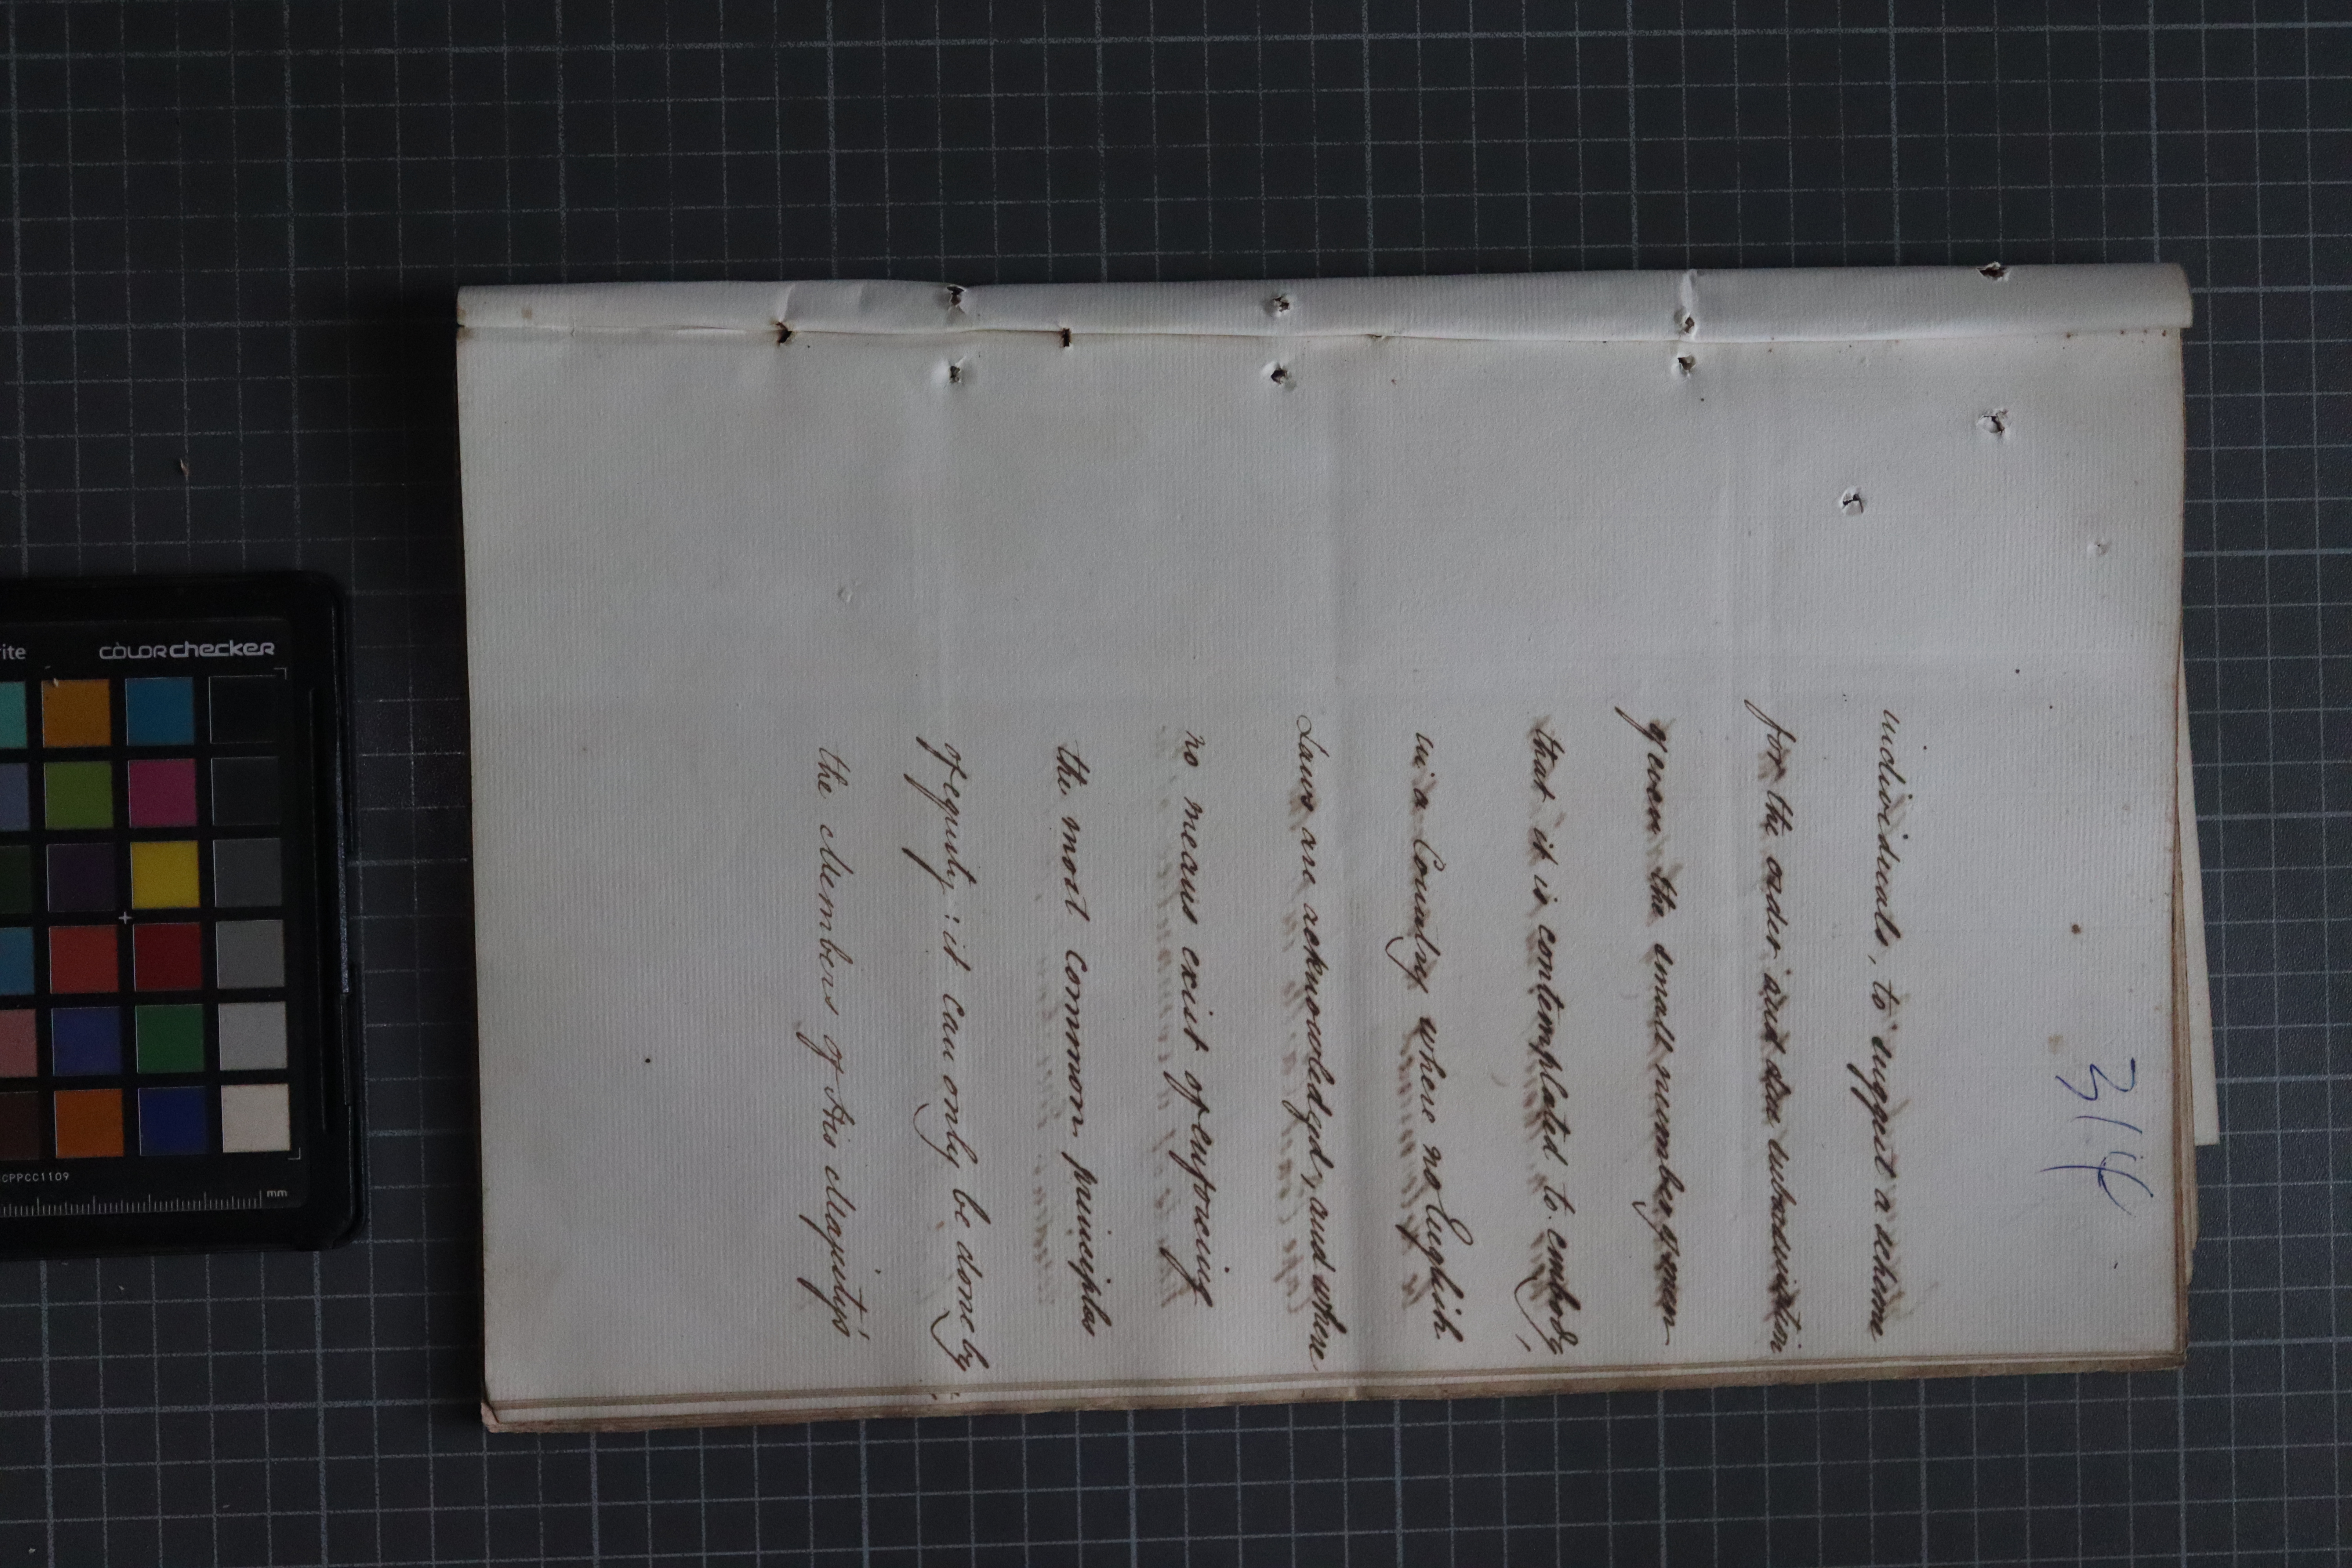 314
individuals, to suggest a scheme
for the order and due subordination
of even the small number of men
that it is contemplated to embody,
in a Country where no English
Laws are acknowledged, and where
no means exist of enforcing
the most common principles
of equity: it can only be done by
the Members of His Majesty's
rite
colorchecker
CPPCC1109
mm